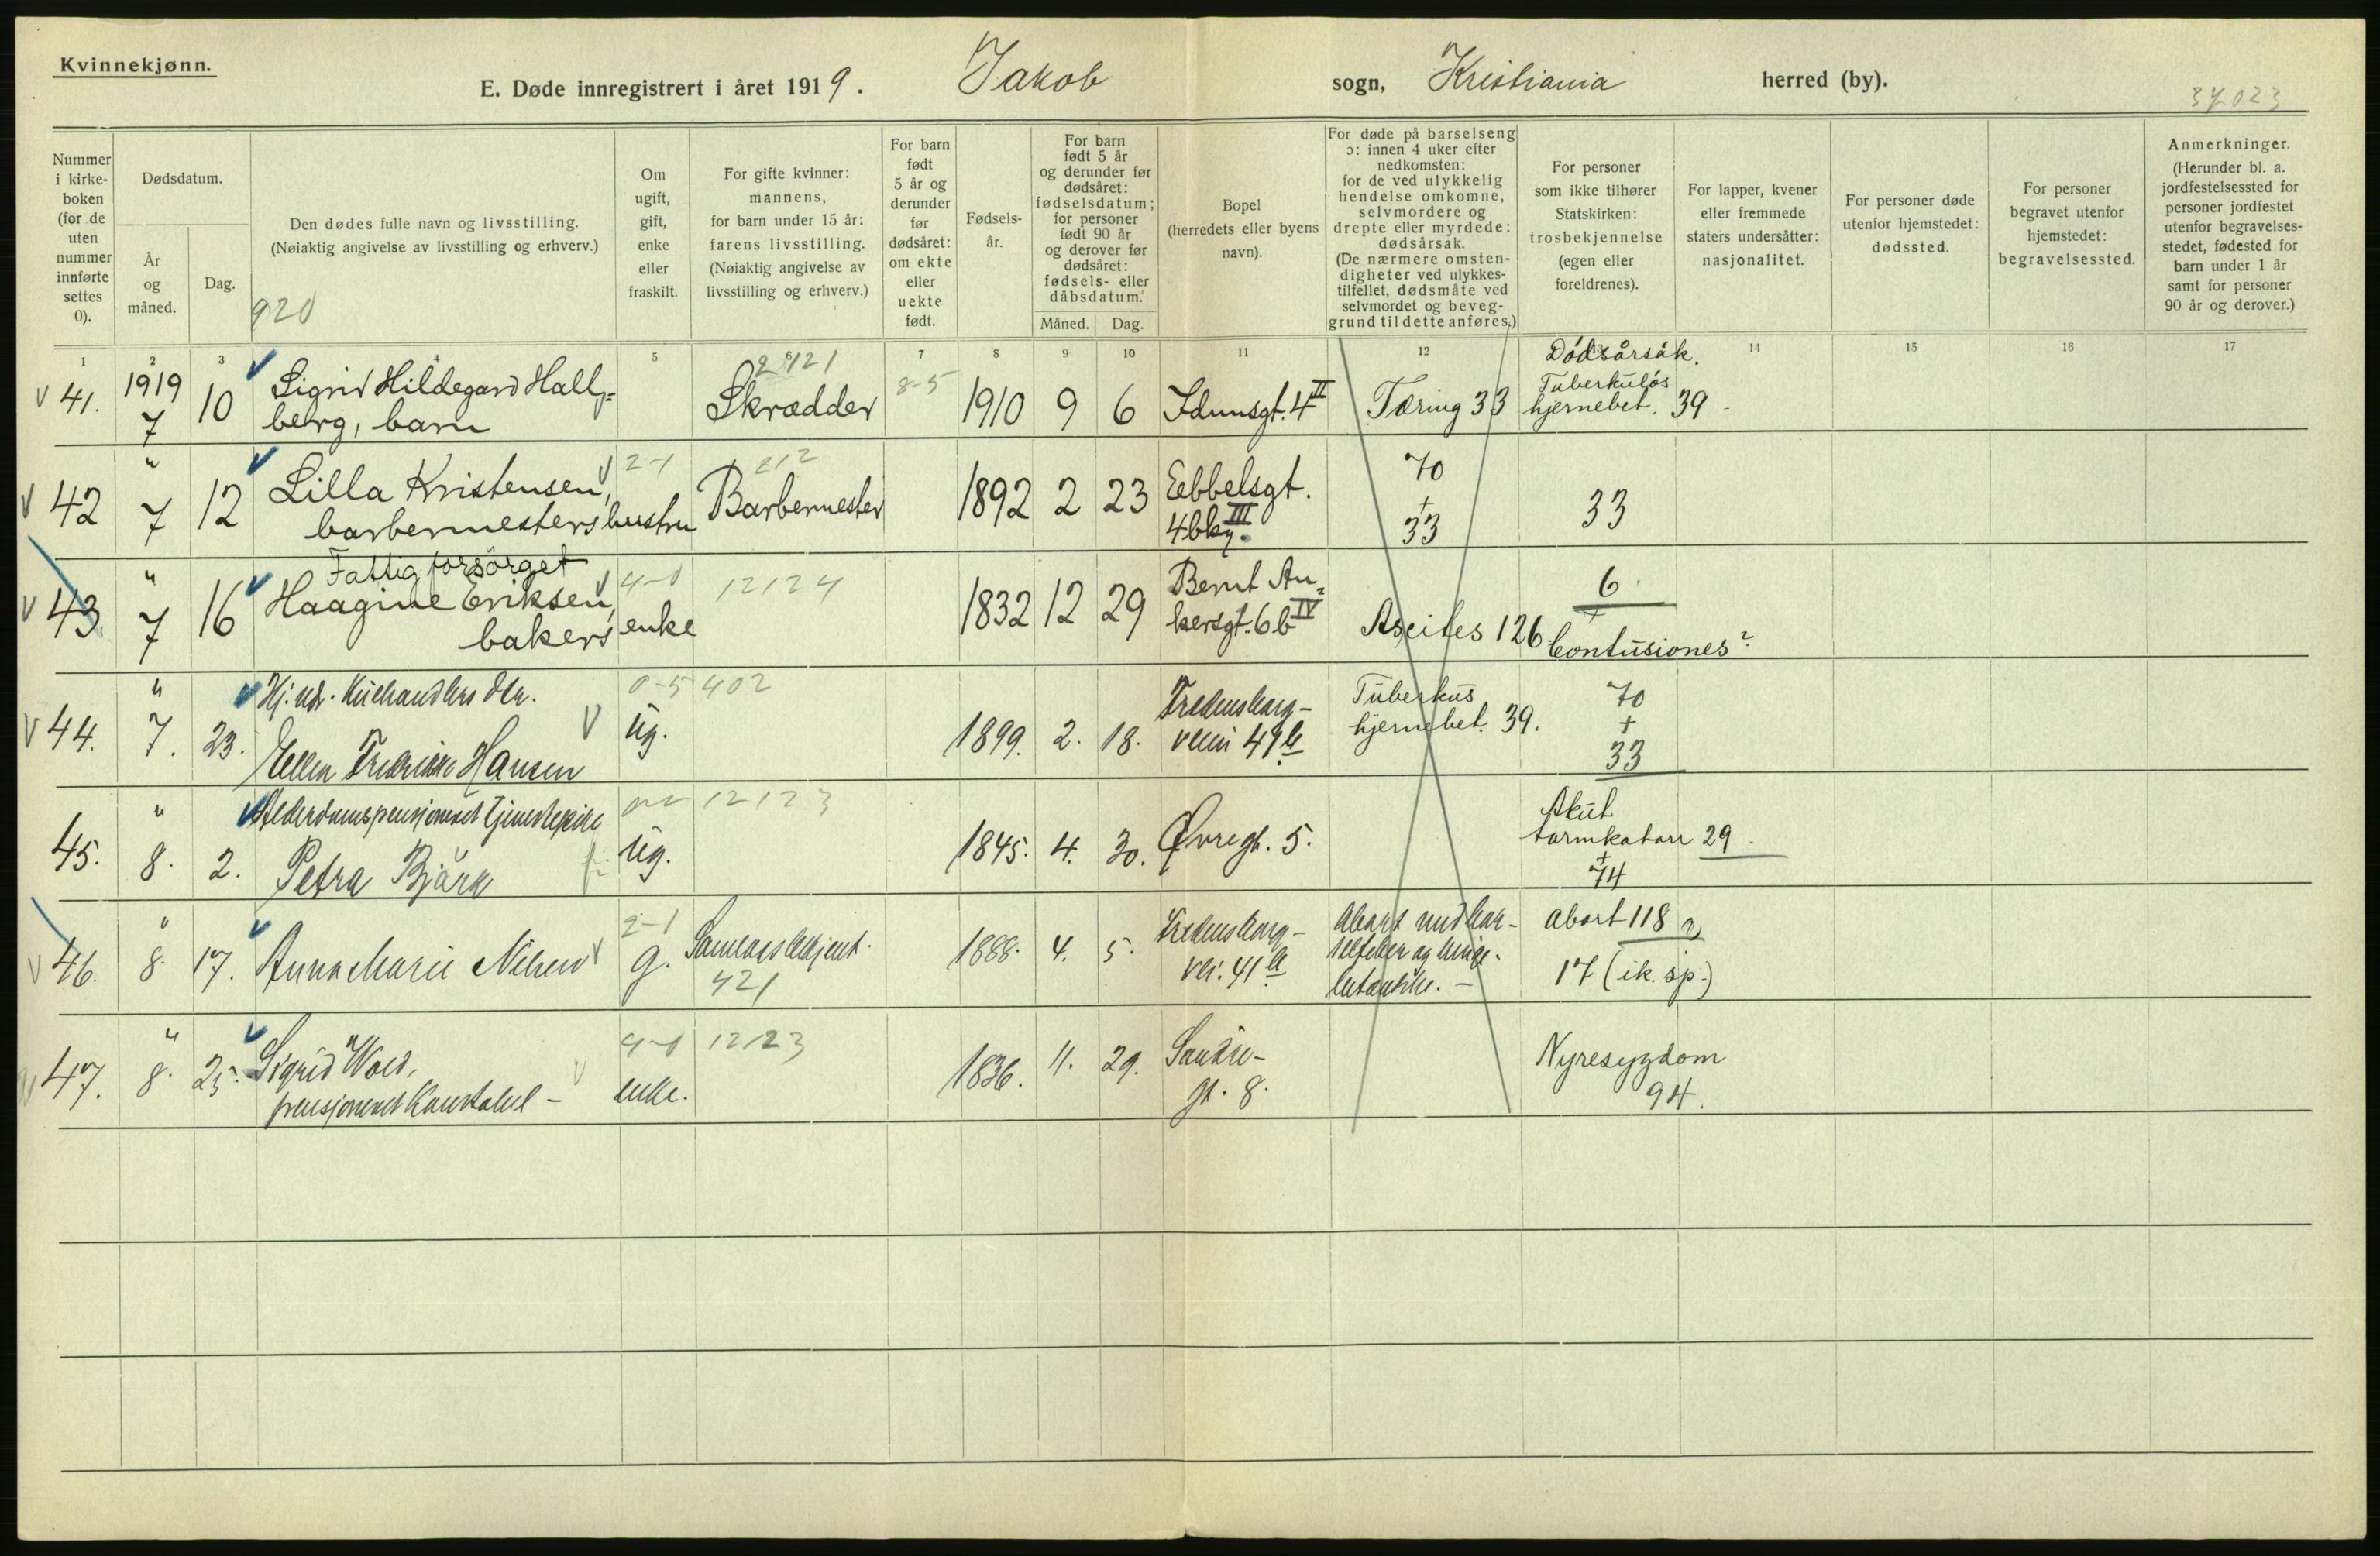 Kvinnekjønn.
E. Døde innregistrert i året 1919. Jakob sogn, Kristiania herred (by).
37023
Nummer i kirkeboken (for de uten nummer innførte settes 0).
Dødsdatum.
År og måned.
Dag.
Den dødes fulle navn og livsstilling.
(Nøiaktig angivelse av livsstilling og erhverv.)
920
Om ugift, gift, enke eller fraskilt.
For gifte kvinner: mannens, for barn under 15 år: farens livsstilling.
(Nøiaktig angivelse av livsstilling og erhverv.)
For barn født 5 år og derunder før dødsåret: om ekte eller uekte født.
Fødselsår.
For barn født 5 år og derunder før dødsåret: fødselsdatum; for personer født 90 år og derover før dødsåret: fødsels- eller dåbsdatum.
Måned.
Dag.
Bopel (herredets eller byens navn).
For døde på barselseng ɔ: innen 4 uker efter nedkomsten: for de ved ulykkelig hendelse omkomne, selvmordere og drepte eller myrdede: dødsårsak.
(De nærmere omstendigheter ved ulykkestilfellet, dødsmåte ved selvmordet og beveggrund til dette anføres.)
For personer som ikke tilhører Statskirken: trosbekjennelse (egen eller foreldrenes).
For lapper, kvener eller fremmede staters undersåtter: nasjonalitet.
For personer døde utenfor hjemstedet: dødssted.
For personer begravet utenfor hjemstedet: begravelsessted.
Anmerkninger.
(Herunder bl. a. jordfestelsessted for personer jordfestet utenfor begravelsesstedet, fødested for barn under 1 år samt for personer 90 år og derover.)
1 2 3 5 6 7 8 9 10 11 12 14 15 16 17
Dødsårsak.
41. 1919 7 10 Sigrid Hildegard Hallgberg, barn 2121 Skrædder 8-5 1910 9 6 Idunsgt. 4 II Tæring 33 Tuberkuløs hjernebet. 39
42 " 7 12 Lilla Kristensen, barbermesters hustru 2-1 212 Barbermester 1892 2 23 Ebbelsgt. 4b III 70 + 33 33
43 " 7 16 Fattigforsørget Haagine Eriksen, bakers enke 4-0 12124 1832 12 29 Bernt Ankersgt. 6b IV Ascites 126 6 + Contusiones?
44. " 7. 23. Ellen Fredrikke Hansen 0-5 402 ug. 1899. 2. 18. Fredensborgveien 49 b Tuberkus hjernebet. 39. 70 + 33
45. " 8. 2. Alderdomspensjonert tjenestepike Petra Björk 12123 ug. 1845. 4. 30. Øvregt. 5. Akut tarmkatarr 29 + 74
46. " 8. 17. Anna Marie Nilsen 2-1 g. 421 1888. 4. 5. Fredensborgvei. 41 b Abort 118 2 17 (ik. sp.)
47. " 8. 25. Sigrid Wold, pensjonert 4-0 12123 enke. 1836. 11. 29. Søndregt. 8. Nyresygdom 94.